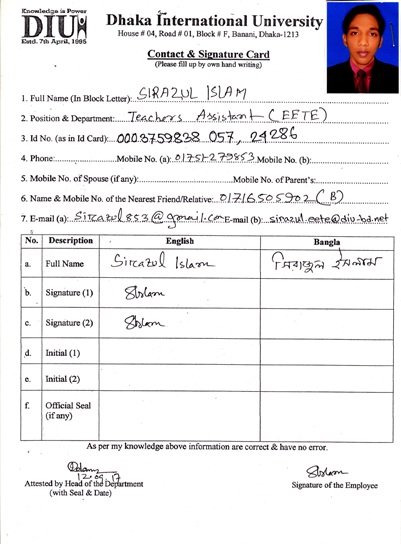 Knowledge is Power
DIU
Estd. 7th April, 1995
Dhaka International University
House # 04, Road # 01, Block # F, Banani, Dhaka-1213
Contact & Signature Card
(Please fill up by own hand writing)
1. Full Name (In Block Letter): SIRAZUL ISLAM
2. Position & Department: Teachers Assistant (EETE)
3. Id No. (as in Id Card): 0003759838 057, 24286
4. Phone: Mobile No. (a): 01751-279853 Mobile No. (b):
5. Mobile No. of Spouse (if any): Mobile No. of Parent's:
6. Name & Mobile No. of the Nearest Friend/Relative: 01716505902 (B)
7. E-mail (a): Sirazul853@gmail.com E-mail (b): sirazul.eete@diu-bd.net
No. Description English Bangla
a. Full Name Sirazul Islam সিরাজুল ইসলাম
b. Signature (1) SIslam
c. Signature (2) SIslam
d. Initial (1)
e. Initial (2)
f. Official Seal
(if any)
As per my knowledge above information are correct & have no error.
12.09.17 SIslam
Attested by Head of the Department Signature of the Employee
(with Seal & Date)